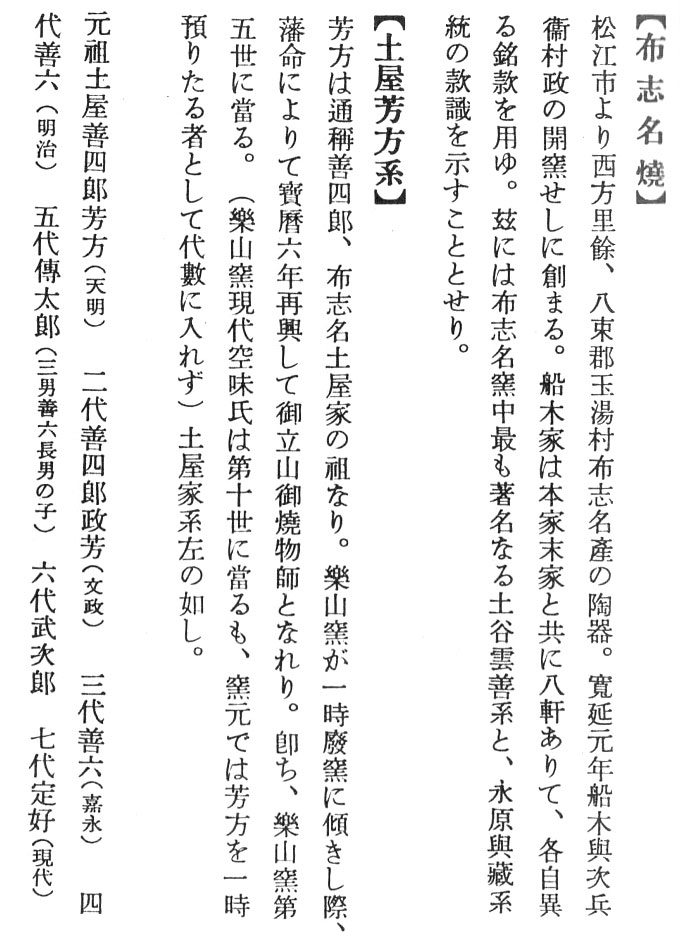 【布志名燒】
松江市より西方里餘、八束郡玉湯村布志名產の陶器。寬延元年船木與次兵
衞村政の開窯せしに創まる。船木家は本家末家と共に八軒ありて、各自異
る銘款を用ゆ。玆には布志名窯中最も著名なる土谷雲善系と、永原與藏系
統の款識を示すこととせり。
【土屋芳方系】
芳方は通稱善四郎、布志名土屋家の祖なり。樂山窯が一時廢窯に傾きし際、
藩命によりて寶曆六年再興して御立山御燒物師となれり。卽ち、樂山窯第
五世に當る。（樂山窯現代空味氏は第十世に當るも、窯元では芳方を一時
預りたる者として代數に入れず）土屋家系左の如し。
元祖土屋善四郎芳方（天明） 二代善四郎政芳（文政） 三代善六（嘉永） 四
代善六（明治） 五代傳太郎（三男善六長男の子） 六代武次郎 七代定好（現代）